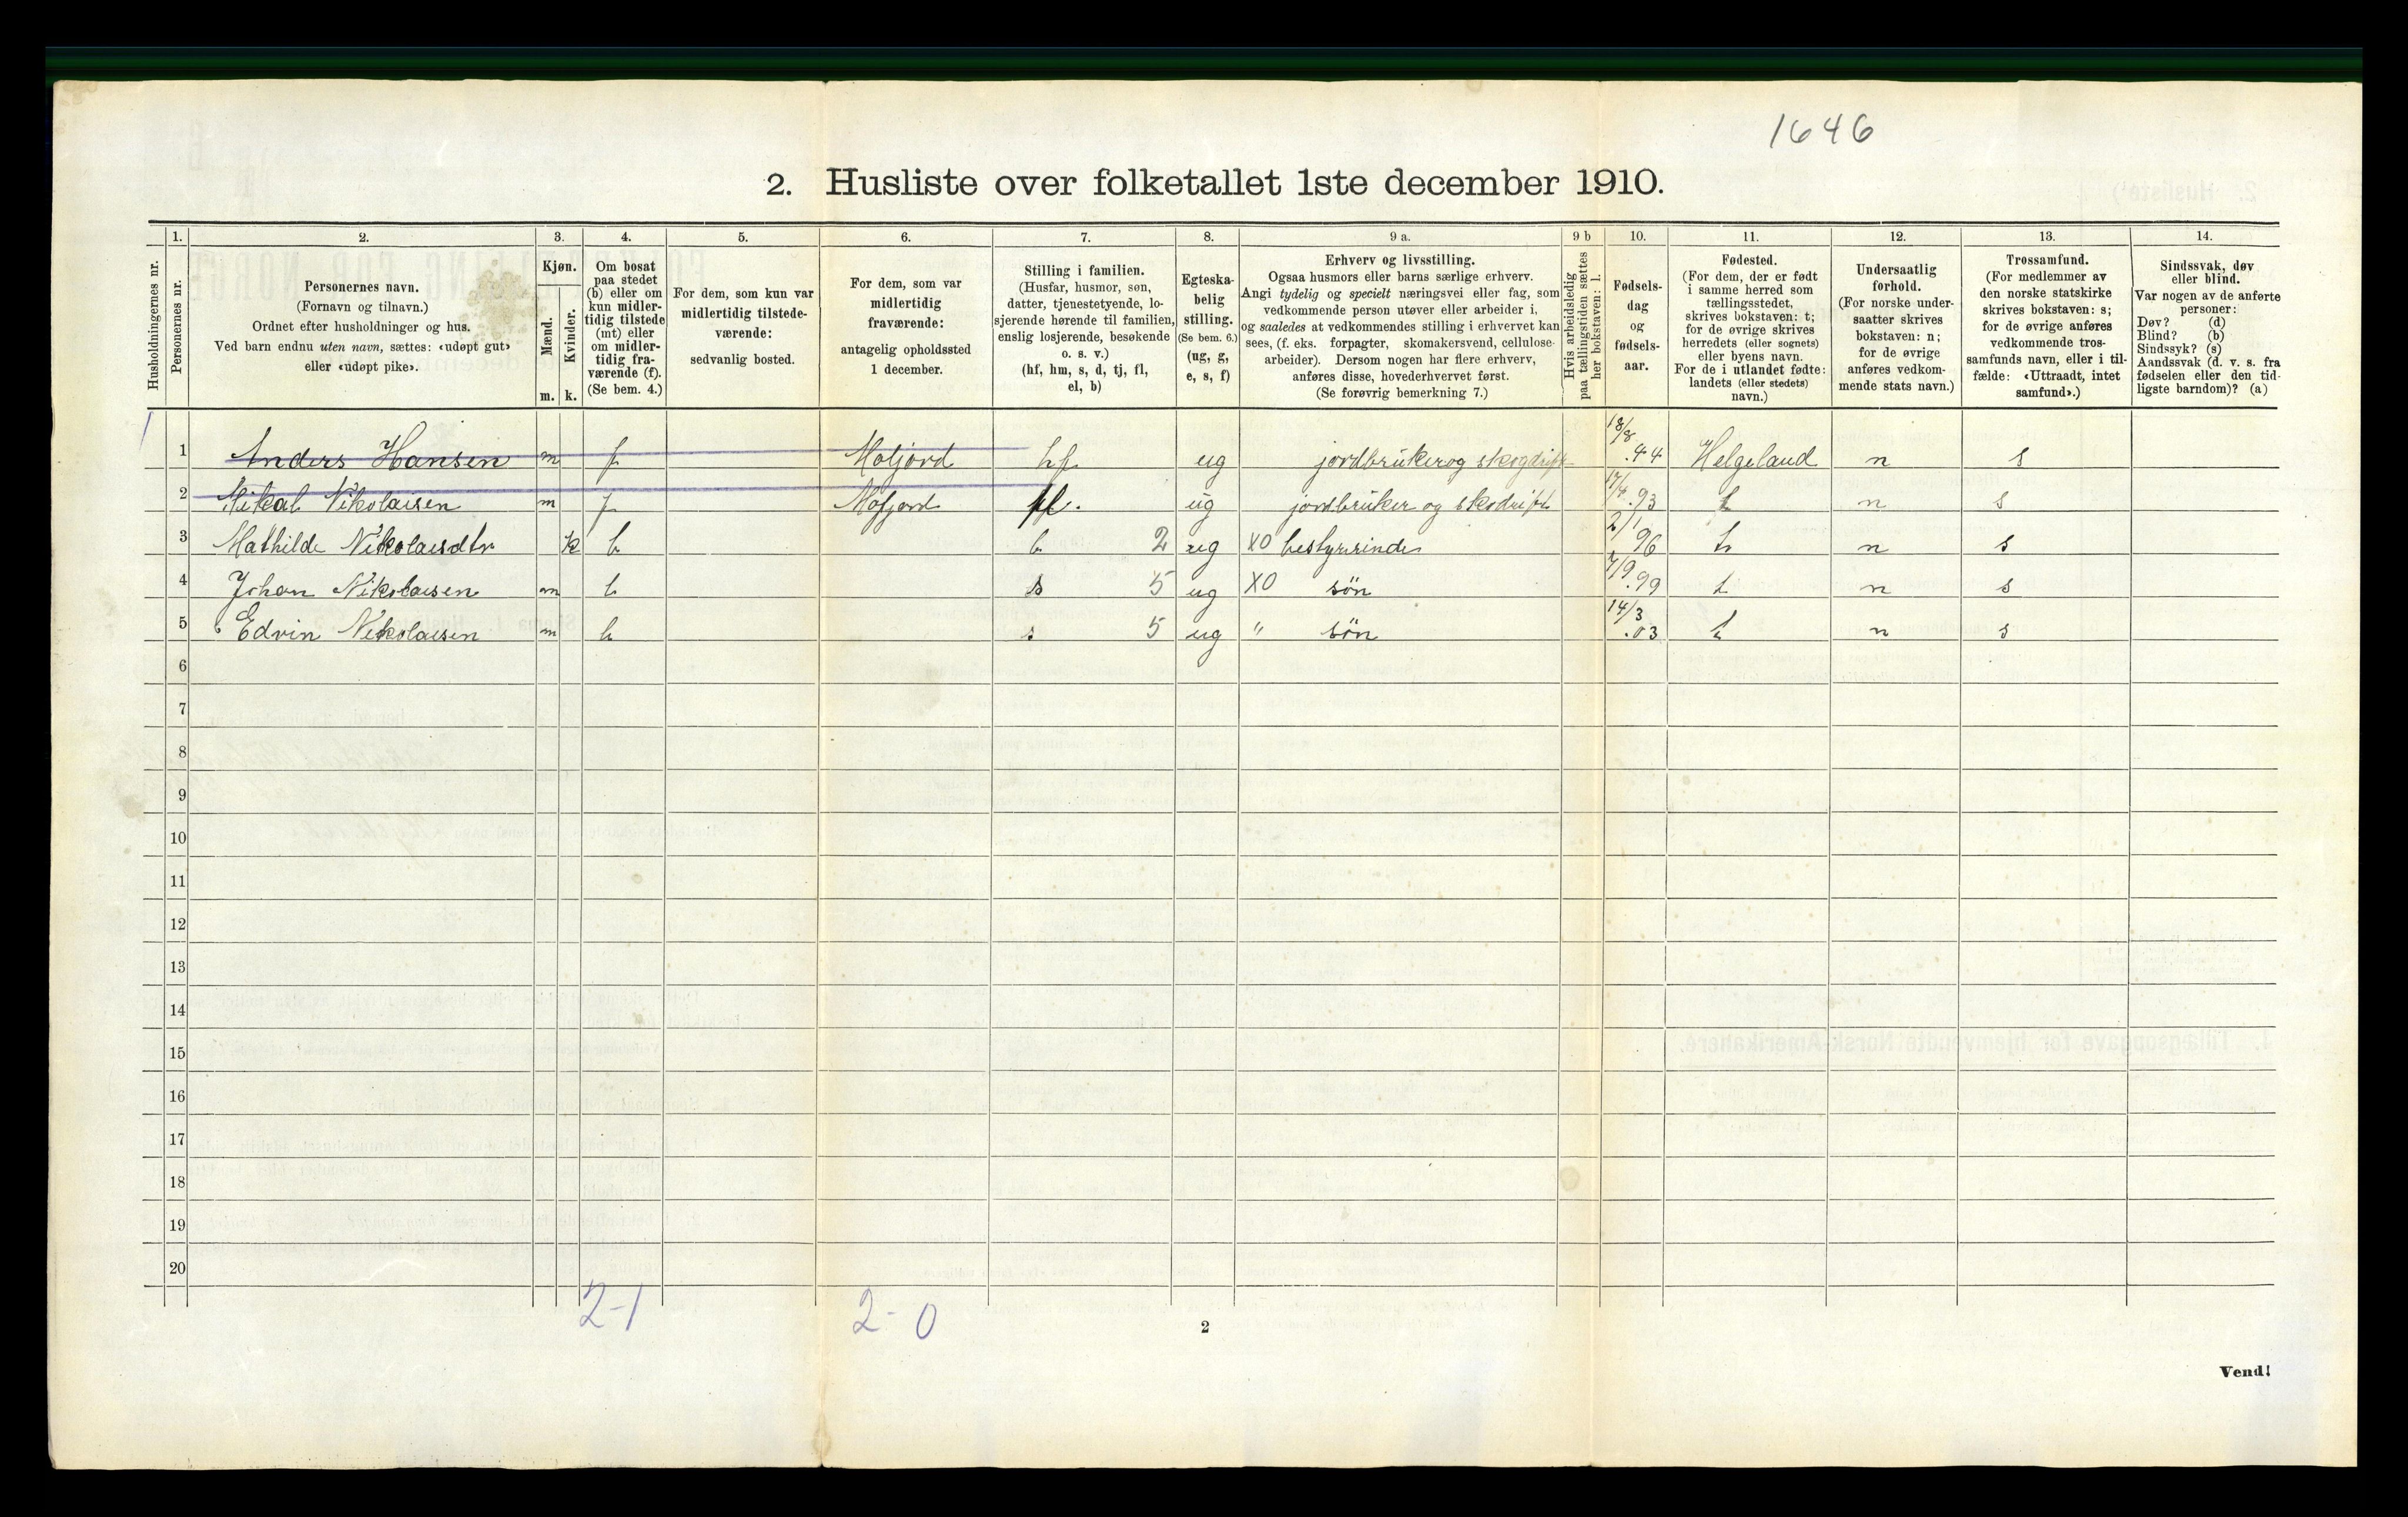 1646
2. Husliste over folketallet 1ste december 1910.
Husholdningernes nr.
1. Personernes nr.
2. Personernes navn.
(Fornavn og tilnavn.)
Ordnet efter husholdninger og hus.
Ved barn endnu uten navn, sættes: «udøpt gut»
eller «udøpt pike».
3. Kjøn.
Mænd. m.
Kvinder. k.
4. Om bosat
paa stedet
(b) eller om
kun midler-
tidig tilstede
(mt) eller
om midler-
tidig fra-
værende (f).
(Se bem. 4.)
5. For dem, som kun var
midlertidig tilstede-
værende:
sedvanlig bosted.
6. For dem, som var
midlertidig
fraværende:
antagelig opholdssted
1 december.
7. Stilling i familien.
(Husfar, husmor, søn,
datter, tjenestetyende, lo-
sjerende hørende til familien,
enslig losjerende, besøkende
o. s. v.)
(hf, hm, s, d, tj, fl,
el, b)
8. Egteska-
belig
stilling.
(Se bem. 6.)
(ug, g,
e, s, f)
9 a. Erhverv og livsstilling.
Ogsaa husmors eller barns særlige erhverv.
Angi tydelig og specielt næringsvei eller fag, som
vedkommende person utøver eller arbeider i,
og saaledes at vedkommendes stilling i erhvervet kan
sees, (f. eks. forpagter, skomakersvend, cellulose-
arbeider). Dersom nogen har flere erhverv,
anføres disse, hovederhvervet først.
(Se forøvrig bemerkning 7.)
9 b Hvis arbeidsledig
paa tællingstiden sættes
her bokstaven: l.
10. Fødsels-
dag
og
fødsels-
aar.
11. Fødested.
(For dem, der er født
i samme herred som
tællingsstedet,
skrives bokstaven: t;
for de øvrige skrives
herredets (eller sognets)
eller byens navn.
For de i utlandet fødte:
landets (eller stedets)
navn.)
12. Undersaatlig
forhold.
(For norske under-
saatter skrives
bokstaven: n;
for de øvrige
anføres vedkom-
mende stats navn.)
13. Trossamfund.
(For medlemmer av
den norske statskirke
skrives bokstaven: s;
for de øvrige anføres
vedkommende tros-
samfunds navn, eller i til-
fælde: «Uttraadt, intet
samfund».)
14. Sindssvak, døv
eller blind.
Var nogen av de anførte
personer:
Døv? (d)
Blind? (b)
Sindssyk? (s)
Aandssvak (d. v. s. fra
fødselen eller den tid-
ligste barndom)? (a)
1 1 Anders Hansen m f Mofjord hf ug jordbruker og skogdrift 18/8 .44 Helgeland n s
2 Mikal Nikolaisen m f Mofjord fl. ug jordbruker og skodrift 17/4 .93 t n s
3 Mathilde Nikolaisdtr k b b 2 ug XO bestyrerinde 2/1 96 t n s
4 Johan Nikolaisen m b s 5 ug XO søn 7/9 .99 t n s
5 Edvin Nikolaisen m b s 5 ug " søn 14/3 .03 t n s
6
7
8
9
10
11
12
13
14
15
16
17
18
19
20
2-1 2-0
2
Vend!